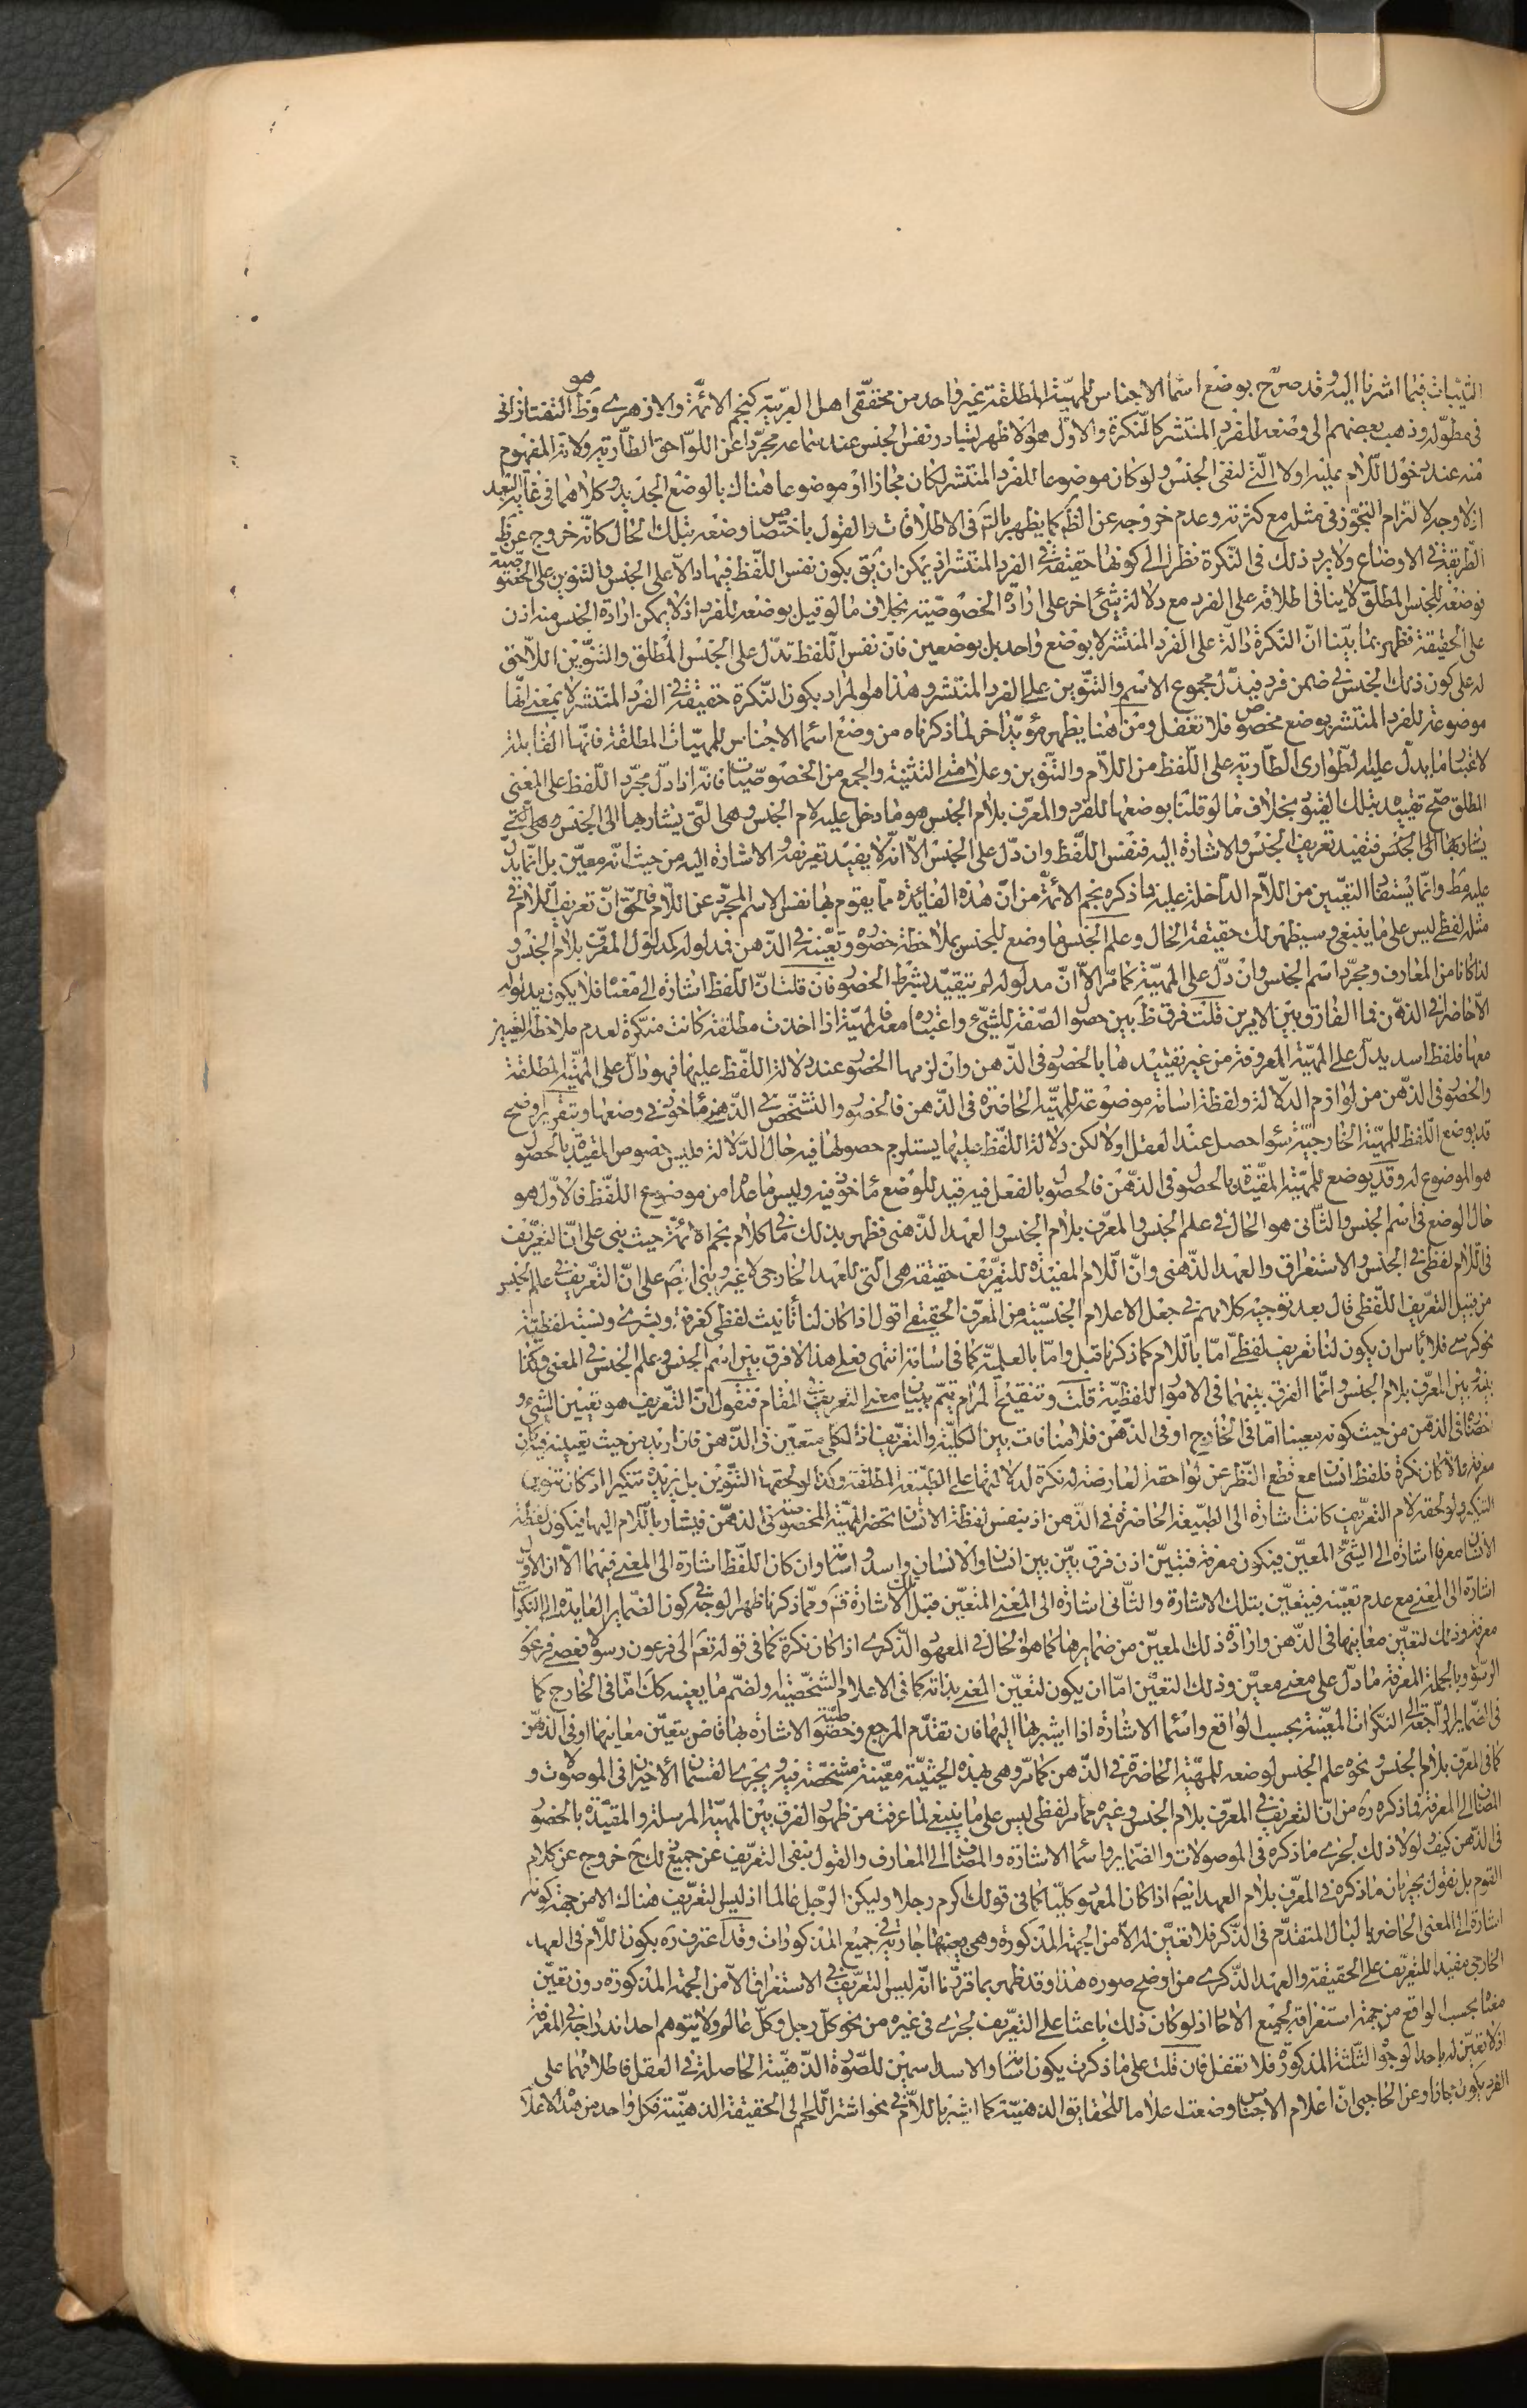 التثبات فيما اشرنا اليه وقد صرّح بوضع اسماء الاجناس للمهيّة المطلقة غير واحد من محققى اهل العربيّة كنجم الائمّة والازهرى وهو ظ التفتازانى
فى مطوّله وذهب بعضهم الى وضعه للفرد المنتشر كالنكرة والاوّل هو الاظهر لتبادر نفس الجنس عند سماعه مجرّدا عن اللواحق الطارية ولانه المفهوم
منه عند دخول اللام عليه او لا التى لنفى الجنس ولو كان موضوعا للفرد المنتشر لكان مجازا او موضوعا هناك بالوضع الجديد وكلاهما فى غاية البعد
اذ لا وجه لالتزام التجوّز فى مثله مع كثرته وعدم خروجه عن الظ كما يظهر بالتم فى الاطلاقات والقول باختصاص وضعه بتلك الحال كانّه خروج عن ظ
الطريقة فى الاوضاع ولا يرد ذلك فى النكرة نظرا الى كونها حقيقة فى الفرد المنتشر اذ يمكن ان يق بكون نفس اللفظ فيها دالا على الجنس والتنوين على الخصوصيّة
فوضعه للجنس المطلق لا ينافى اطلاقه على الفرد مع دلالة شئ اخر على ارادة الخصوصيّة بخلاف ما لو قيل بوضعه للفرد اذ لا يمكن ارادة الجنس منه اذن
على الحقيقة فظهر بما بيّنا انّ النكرة دالّة على الفرد المنتشر لا بوضع واحد بل بوضعين فانّ نفس اللفظ تدلّ على الجنس المطلق والتنوين اللاحق
له على كون ذلك الجنس فى ضمن فرد فيدلّ مجموع الاسم والتنوين على الفرد المنتشر وهذا هو المراد بكون النكرة حقيقة فى الفرد المنتشر لا بمعنى انها
موضوعة للفرد المنتشر بوضع مخصوص فلا تغفل ومن هنا يظهر مؤيّد اخر لما ذكرناه من وضع اسماء الاجناس للمهيّات المطلقة فانّها القابلة
لاعتبار ما يدلّ عليه الطوارى الطارية على اللفظ من اللام والتنوين وعلامتى التثنية والجمع من الخصوصيّات فانه اذا دلّ مجرّد اللفظ على المعنى
المطلق صحّ تقييده بتلك القيود بخلاف ما لو قلنا بوضعها للفرد والمعرّف بلام الجنس هو ما دخل عليه لام الجنس وهى التى يشار بها الى الجنس وهى التى
يشار بها الى الجنس فتفيد تعريف الجنس والاشارة اليه فنفس اللفظ وان دلّ على الجنس الّا انّه لا يفيد تعريفه والاشارة اليه من حيث انّه معيّن بل انّما يدلّ
عليه مط وانّما يستفاد التعيين من اللام الداخلة عليه وما ذكره نجم الائمّة من انّ هذه الفائدة ممّا يقوم بها نفس الاسم المجرّد عن اللام فالحقّ انّ تعريف اللام فى
مثله لفظى ليس على ما ينبغى وسيظهر لك حقيقة الحال وعلم الجنس ما وضع للجنس بملاحظة حضوره وتعيّنه فى الذهن فمدلوله كمدلول المعرّف بلام الجنس و
لذا كانا من المعارف ومجرّد اسم الجنس وان دلّ على المهيّة كما مرّ الّا انّ مدلوله لم يتقيّد بشرط الحضور فان قلت انّ اللفظ اشارة الى معناه فلا يكون مدلوله
الّا حاضرا فى الذهن فما الفارق بين الامرين قلت فرق ظ بين حصول الصّفة للشئ واعتباره معه فالمهيّة اذا اخذت مطلقة كانت منكّرة لعدم ملاحظة التعيين
معها فلفظ اسد يدلّ على المهيّة المعروفة من غير تقييدها بالحضور فى الذهن وان لزمها الحضور عند دلالة اللفظ عليها فهو دالّ على المهيّة المطلقة
والحضور فى الذهن من لوازم الدلالة ولفظة اسامة موضوعة للمهيّة الحاضرة فى الذهن فالحضور والتشخّص فى الذهن ماخوذ فى وضعها وتقرير اوضح
قد يوضع اللفظ للمهيّة الخارجيّة سواء حصل عند العقل او لا لكن دلالة اللفظ عليها يستلزم حصولها فيه حال الدلالة فليس خصوص المقيّدة بالحصول
هو الموضوع له وقد يوضع للمهيّة المقيّدة بالحصول فى الذهن فالحصول بالفعل فيه قيد للوضع ماخوذ فيه وليس ما عداه من موضوع اللفظ فالاوّل هو
حال الوضع فى اسم الجنس والثانى هو الحال فى علم الجنس والمعرّف بلام الجنس والعهد الذهنى فظهر بذلك ما فى كلام نجم الائمّة حيث بنى على انّ التعريف
فى اللام لفظى فى الجنس والاستغراق والعهد الذهنى وانّ اللام المفيدة للتعريف حقيقة هى التى للعهد الخارجى لا غير وبنى ايضا على انّ التعريف فى علم الجنس
من قبيل التعريف اللفظى قال بعد توجيه كلامهم فى جعل الاعلام الجنسيّة من المعرّف الحقيقى اقول اذا كان لنا تأنيث لفظى كغرفة وبشرى ونسبة لفظيّة
نحو كرسى فلا بأس ان يكون لنا تعريف لفظى امّا باللام كما ذكرنا قبل وامّا بالعلميّة كما فى اسامة انتهى فعلى هذا لا فرق بين اسم الجنس وعلم الجنس فى المعنى وكذا
بينه وبين المعرّف بلام الجنس وانّما الفرق بينهما فى الامور اللفظيّة قلت وتنقيح المرام يتمّ ببيان معنى التعريف فى المقام فنقول انّ التعريف هو تعيين الشئ و
احضاره فى الذهن من حيث كونه معينا امّا فى الخارج او فى الذهن فلا منافات بين الكليّة والتعريف اذ الكلّى متعيّن فى الذهن فان اريد من حيث تعيينه فيه كان
معرفة والّا كان نكرة فلفظ انسان مع قطع النظر عن لواحقه العارضة له نكرة لدلالتها على الطبيعة المطلقة وكذا لو لحقها التنوين بل يزيده تنكيرا اذ كان تنوين
التنكير ولو لحقه لام التعريف كانت اشارة الى الطبيعة الحاضرة فى الذهن اذ بنفس لفظة الانسان تحضر المهيّة المخصوصة فى الذهن فيشار باللام اليها فيكون لفظة
الانسان معرفا اشارة الى الشئ المعيّن فيكون معرفة فتبيّن اذن فرق بيّن بين انسان والانسان واسد واسامة وان كان اللفظ اشارة الى المعنى فيهما الّا ان الاوّل
اشارة الى المعنى مع عدم تعيّنه فيتعيّن بتلك الاشارة والثانى اشارة الى المعنى المتعيّن قبل تلك الاشارة فتم وممّا ذكرنا ظهر الوجه فى كون الضماير العايدة الى النكرات
معرفة وذلك لتعيّن معانيها فى الذهن وارادة ذلك المعيّن من ضمايرها كما هو الحال فى المعهود الذكرى اذا كان نكرة كما فى قوله تعم الى فرعون رسولا فعصى فرعون
الرسول وبالجملة المعرفة ما دلّ على معنى معيّن وذلك التعيّن امّا ان يكون لتعيّن المعنى بذاته كما فى الاعلام الشخصيّة او لضمّ ما يعينه كك امّا فى الخارج كما
فى الضماير الراجعة الى النكرات المعيّنة بحسب الواقع واسماء الاشارة اذا اشير بها اليها فان تقدّم المرجع وخصوصيّة الاشارة بها قاض بتعيّن معانيها او فى الذهن
كما فى المعرّف بلام الجنس ونحوه علم الجنس لوضعه للمهيّة الحاضرة فى الذهن كما مرّ وهى بهذه الحيثيّة معيّنة متشخّصة فيه ويجرى القسمان الاخيران فى الموصولات و
المضاف الى المعرفة فما ذكره ره من انّ التعريف فى المعرّف بلام الجنس وغيره ممّا مرّ لفظى ليس على ما ينبغى لما عرفت من ظهور الفرق بين المهيّة المرسلة والمقيّدة بالحضور
فى الذهن كيف ولولا ذلك لجرى ما ذكره فى الموصولات والضماير واسماء الاشارة والمضاف الى المعارف والقول بنفى التعريف عن جميع ذلك ح خروج عن كلام
القوم بل نقول بجريان ما ذكره فى المعرّف بلام العهد ايضا اذا كان المعهود كليّا كما فى قولك اكرم رجلا وليكن الرجل عالما اذ ليس التعريف هناك الا من جهة كونه
اشارة الى المعنى الحاضر بالبال المتقدّم فى الذكر فلا تعيّن له الّا من الجهة المذكورة وهى بعينها جارية فى جميع المذكورات وقد اعترف ره بكون اللام فى العهد
الخارجى مفيدا للتعريف على الحقيقة والعهد الذكرى من اوضح صوره هذا وقد ظهر بما قرّرنا انّه ليس التعريف فى الاستغراق الّا من الجهة المذكورة دون تعيّن
معناه بحسب الواقع من جهة استغراقه لجميع الاحاد اذ لو كان ذلك باعثا على التعريف لجرى فى غيره من نحو كل رجل وكلّ عالم ولا يتوهم احد اندراجه فى المعرفة
اذ لا تعيّن له باحد الوجوه الثلثة المذكورة فلا تغفل فان قلت على ما ذكرت يكون اسامة والاسد اسمين للصّورة الذهنيّة الحاصلة فى العقل فاطلاقهما على
الفرد يكون مجازا وعن الحاجبى ان اعلام الاجناس وضعت علاما للحقايق الذهنيّة كما اشير باللام فى نحو اشتر اللحم الى الحقيقة الذهنيّة فكل واحد من هذه الاعلام